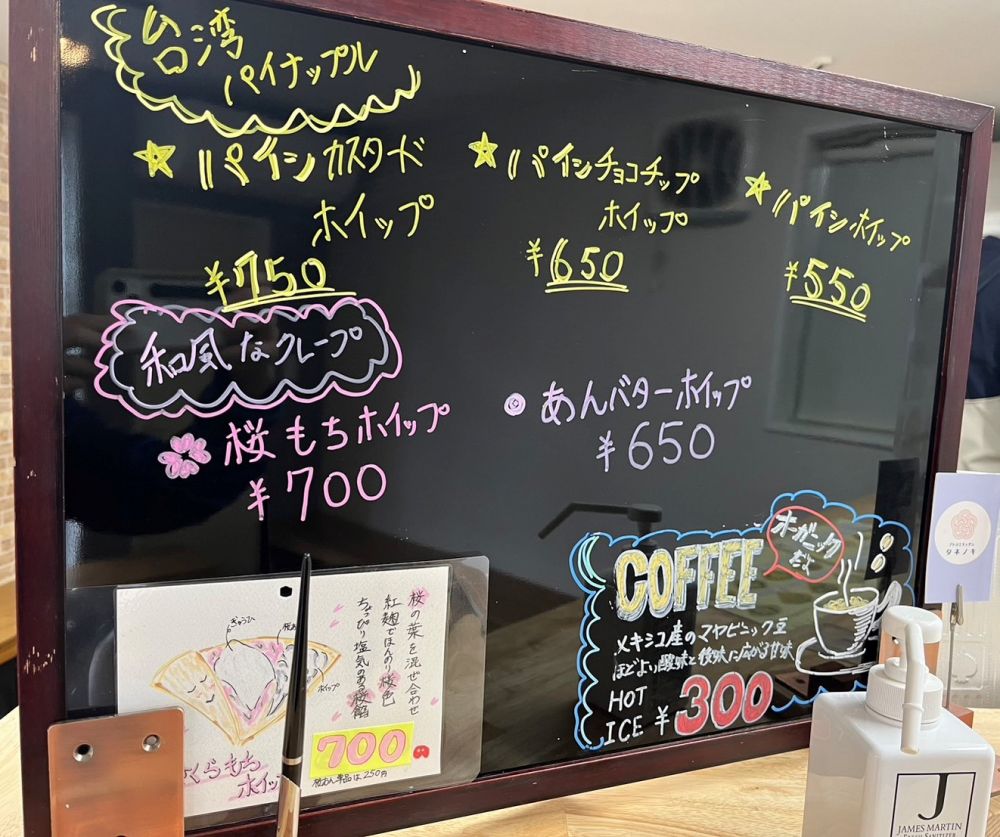 台湾
パイナップル
★パインカスタード
ホイップ
¥750
★パインチョコチップ
ホイップ
¥650
★パインホイップ
¥550
和風なクレープ
桜もちホイップ
¥700
あんバターホイップ
¥650
COFFEE
オーガニック
だよ
メキシコ産のマヤビニック豆
ほどよい酸味と後味に広がる甘味
HOT
ICE ¥300
桜の葉を混ぜ合わせ
紅麹でほんのり桜色
ちょっぴり塩気のある桜餡
ぎゅうひ
ホイップ
くらもち
ホイッ
700
桜あん単品は250円
タネノキ
J
JAMES MARTIN
FRESH SANITIZER